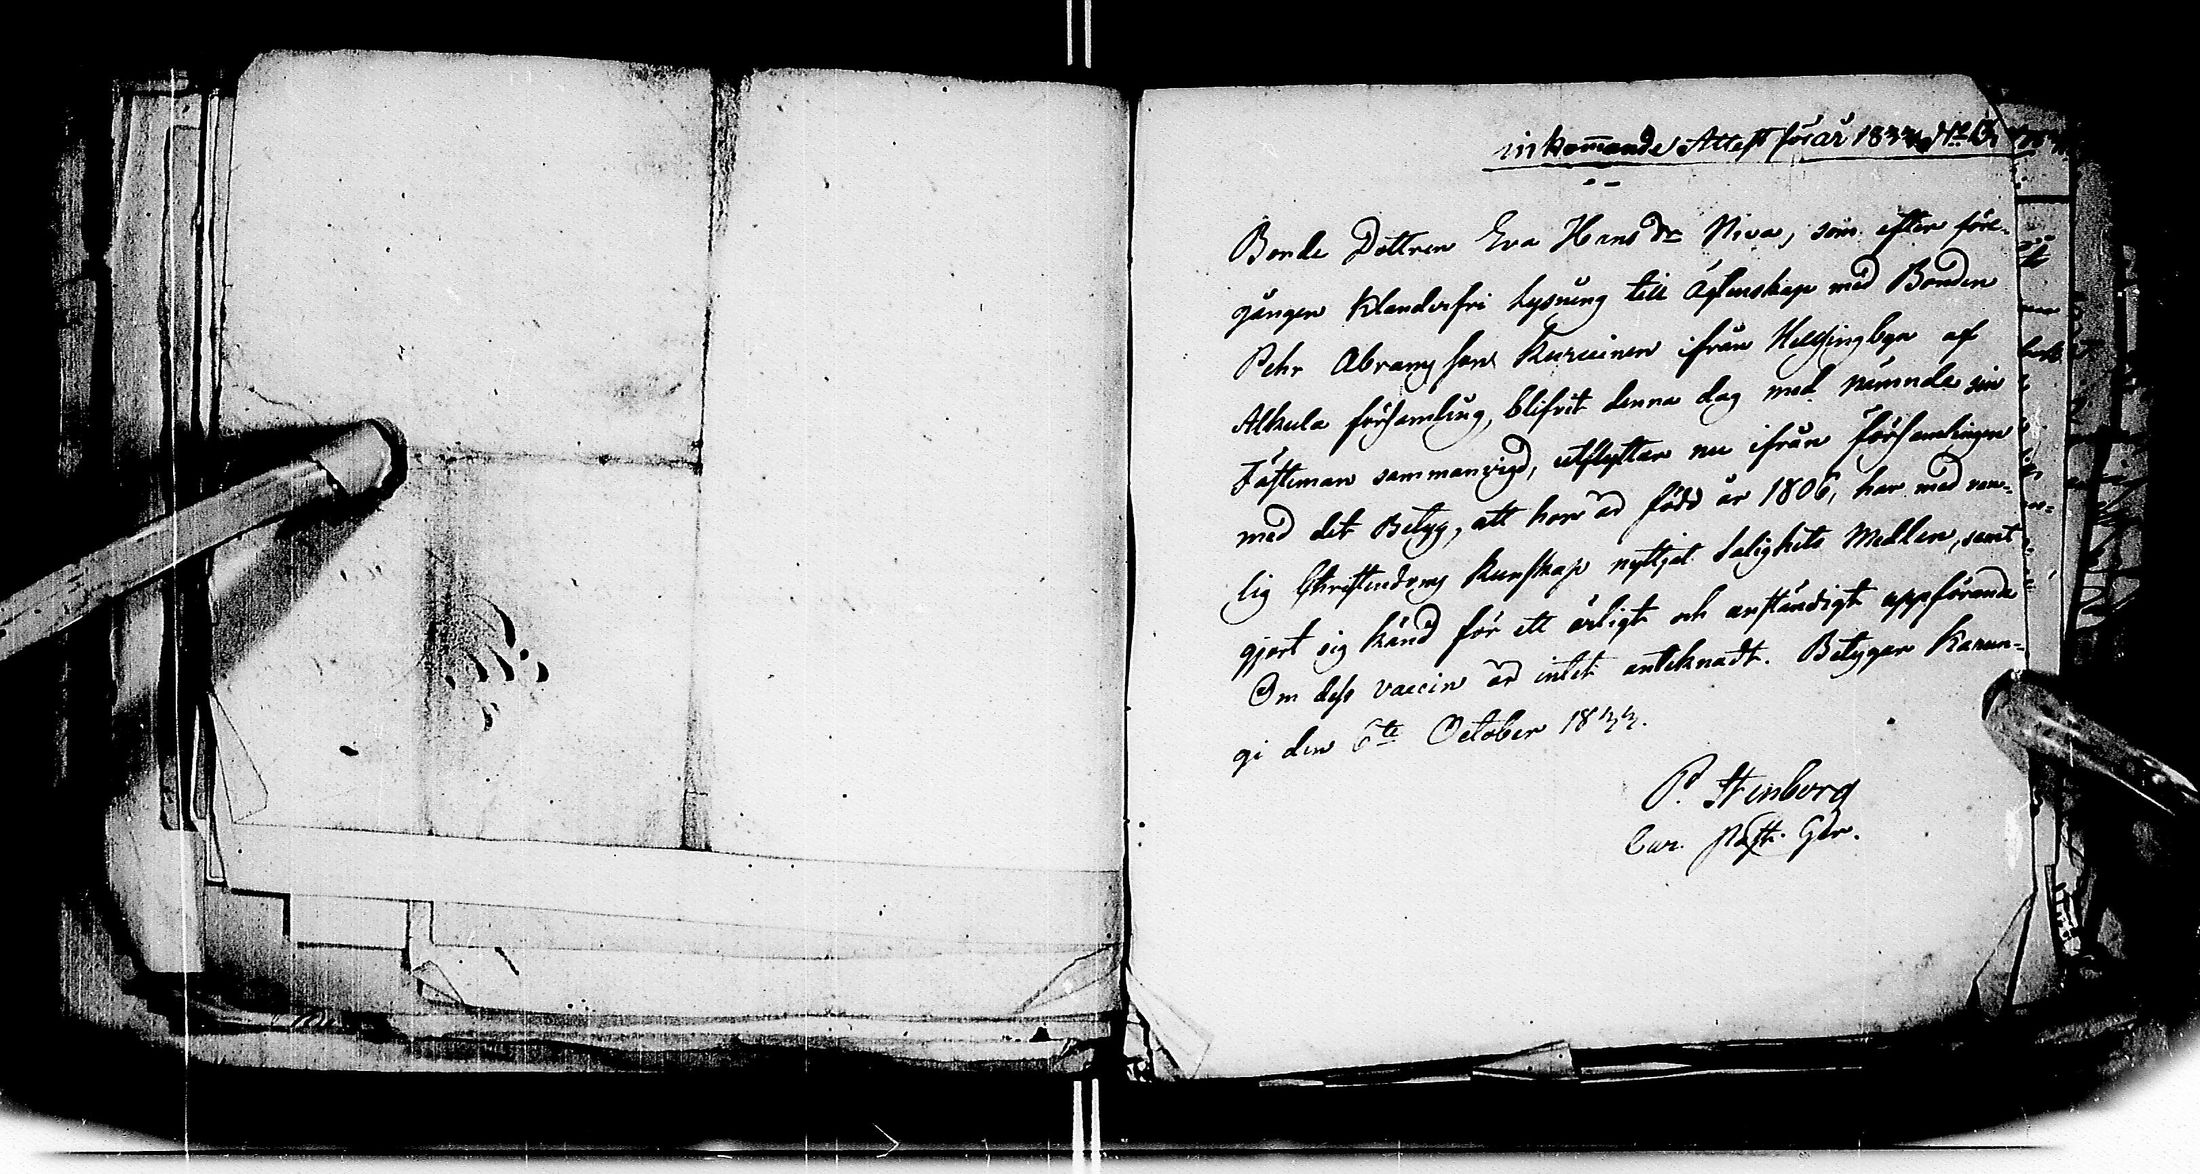 inkom̅ande Attest för år 1833 No 13
Bonde Dottren Eva Hans dr Niva, som efter före-
gången klanderfri Lysning till Ägtenskap med Bonden
Pehr Abrams son Kuruinen ifrån Helsingbyn af
Alkula församling, blifvit denna dag med nämnde sin
Fästeman sammanvigd, utflyttar nu ifrån församlingen
med det Betyg, att hon är född år 1806, har med nöw-
lig Christendoms kunskap nyttjat Salighets Medlen, samt
gjort sig känd för ett ärligt och anständigt uppförande
Om dess vaccin är intet anteknadt. Betygar Karun-
gi den 6te October 1833.
P. Stenborg
Cur. Past. Gör.